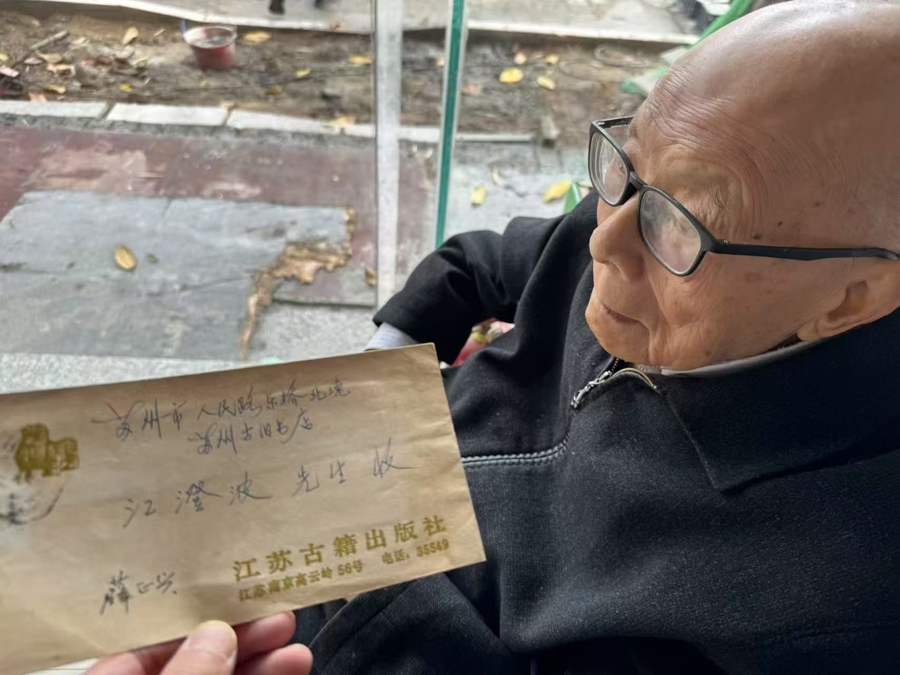 苏州市人民路乐桥北境
苏州古旧书店
江澄波先生收
江苏古籍出版社
江苏南京高云岭56号 电话：35549
薛正兴